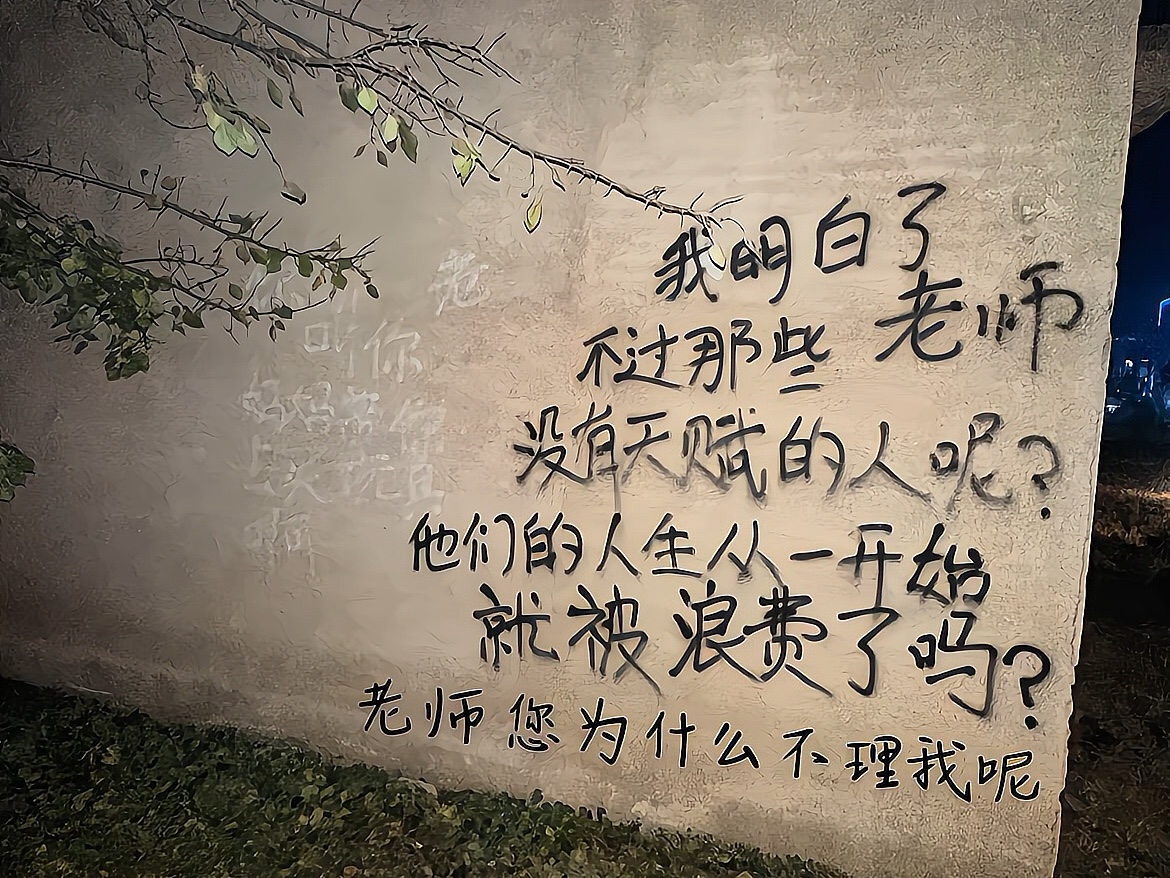 我明白了
老师
不过那些
没有天赋的人呢?
他们的人生从一开始
就被浪费了吗?
老师您为什么不理我呢